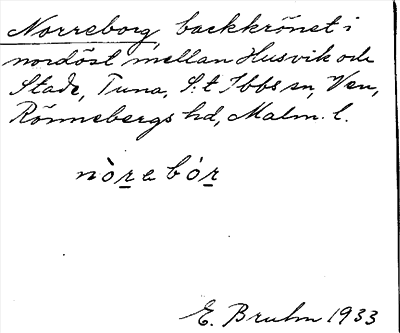 Norreborg, backkrönet i
nordöst mellan Husvik och
Stade, Tuna, S:t Ibbs sn, Ven,
Rönnebergs hd, Malm. l.
nòrebór
E. Bruhn 1933